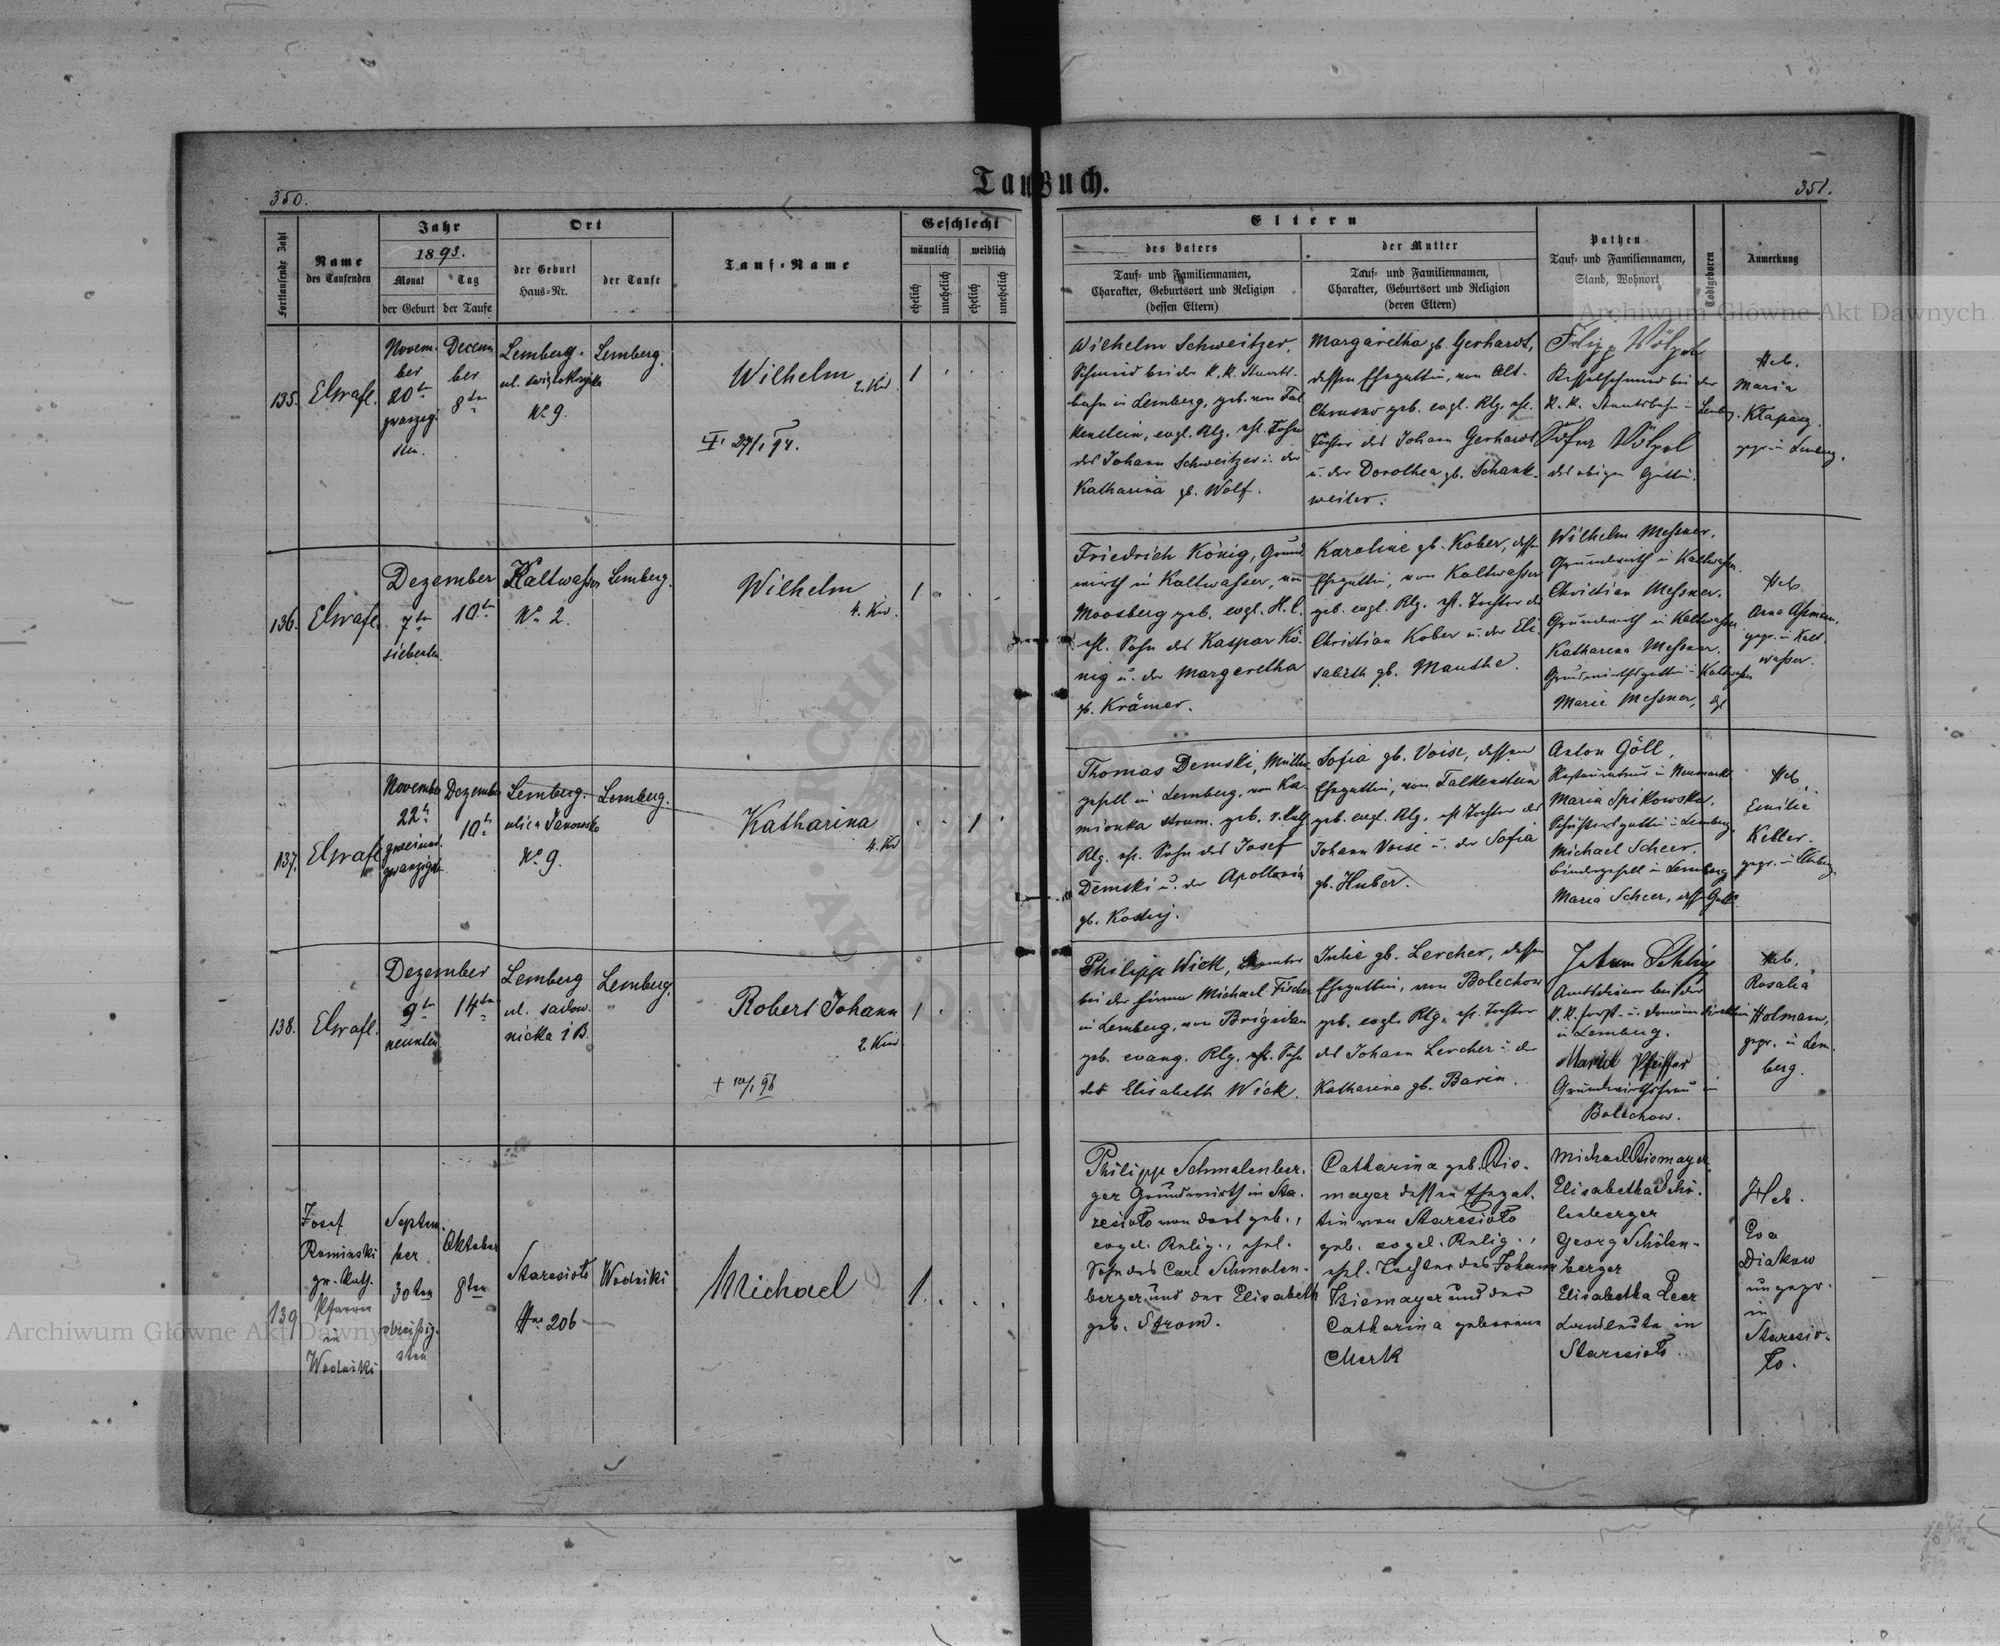 Taufbuch.
350.
351.
Fortlaufende Zahl
Name
des Taufenden
Jahr
1893.
Monat
der Geburt
Tag
der Taufe
Ort
der Geburt
Haus-Nr.
der Taufe
Tauf-Name
Geschlecht
männlich
weiblich
ehelich
unehelich
ehelich
unehelich
Eltern
des Vaters
Tauf- und Familiennamen,
Charakter, Geburtsort und Religion
(dessen Eltern)
der Mutter
Tauf- und Familiennamen,
Charakter, Geburtsort und Religion
(deren Eltern)
Pathen
Tauf- und Familiennamen,
Stand, Wohnort
Todtgeboren
Anmerkung
135.
Novem-
ber
20te
Decem
ber
8ten
Lemberg.
No 9.
Lemberg.
Wilhelm
2. Kind
1
Wilhelm Schweitzer,
Schmied bei der K. K. Staats-
bahn in Lemberg, geb. von Fal
kenstein, evgl. Rlg. ehl. Sohn
des Johann Schweitzer u. der
Katharina gb. Wolf.
Margaretha gb. Gerhardt,
dessen Ehegattin, von Alt-
Chrusno geb. evgl. Rlg. ehl.
Tochter des Johann Gerhardt
u. der Dorothea gb. Schank-
weiler.
Filipp Völpel
Kesselschmied bei der
K. K. Staatsbahn - Lemberg.
Völpel
des obigen Gattin.
Heb.
Maria
gepr. in Lemberg.
136.
Dezember
7te
siebenten
10te
Kaltwasser
No 2.
Lemberg.
Wilhelm
4. Kind.
1
Friedrich König, Grund
wirth in Kaltwasser, von
Moosberg geb. evgl. H. C.
ehl. Sohn des Kaspar Kö
nig u. der Margaretha
gb. Krämer.
Karoline gb. Kober, dessen
Ehegattin, von Kaltwasser
geb. evgl. Rlg. ehl. Tochter des
Christian Kober u. der Eli-
sabeth gb. Mauthe.
Wilhelm Meßner,
Grundwirth in Kaltwasser.
Christian Meßner,
Grundwirth in Kaltwasser
Katharina Meßner,
Grundwirthsgattin - Kaltwasser
Marie Meßner,
Heb.
Anna
gepr. in Kalt-
wasser.
137.
November
22te
zweiund
zwanzigst
Dezember
10te
Lemberg.
ulica Janowska
No 9.
Lemberg.
Katharina
4. Kind
1
Thomas Demski, Müller
gesell in Lemberg, von Ka-
mionka strum. geb. r. kath.
Rlg. ehl. Sohn des Josef
Demski u. der Apollonia
gb.
Sofia gb. Voise, dessen
Ehegattin, von Falkenstein
geb. evgl. Rlg. ehl Tochter des
Johann Voise u. der Sofia
gb. Huber.
Anton Göll,
Restaurateur in
Maria Spikowska,
Schustersgattin - Lemberg.
Michael Scheer,
Bindergesell in Lemberg
Maria Scheer, dess. Gatt.
Heb.
Emilie
Keller.
gepr. in Lemberg.
138.
Dezember
9te
neunten
14te
Lemberg
ul. sadow-
nicka 1 B.
Lemberg.
Robert Johann
2. Kind
1
Philipp Wick, Beamter
bei der Firma Michael Fischer
in Lemberg, von Brigidau
geb. evang. Rlg. ehl. Sohn
der Elisabeth Wick.
Julie gb. Lercher, dessen
Ehegattin, von Bolechow
geb. evgl. Rlg. ehl. Tochter
des Johann Lercher u. der
Katharina gb. Barin.
Amtsdiener bei der
K. K. Forst- u. Domänen direktion
in Lemberg.
Pfeiffer
Grundwirthsfrau in
Bolechow.
Heb.
Rosalia
Holmann,
gepr. in Lem-
berg.
139
Josef
Raminski
gr. kath.
Pfarrer
in
Wodniki
Septem-
ber
30ten
dreißig-
sten
Oktober
8ten
Staresioło
Hno 206
Wodniki
Michael
1
Philipp Schmalenber-
ger Grundwirth in Sta-
resioło von dort geb.,
evgel. Relig., ehel.
Sohn des Carl Schmalen-
berger und der Elisabeth
geb. Strom.
Catharina geb. Bis-
mayer dessen Ehegat-
tin von Staresioło
geb. evgel. Relig.,
ehl. Tochter des Johann
Bismayer und der
Catharina geborene
Merk
Michael Bismayer
Elisabetha Schö-
lenberger
Georg Schölen-
berger
Elisabetha Peer
Landleute in
Staresioło
Heb.
Eva
Diakow
ungepr.
in
Staresio-
ło.
Archiwum Główne Akt Dawnych
Archiwum Główne Akt Dawnych